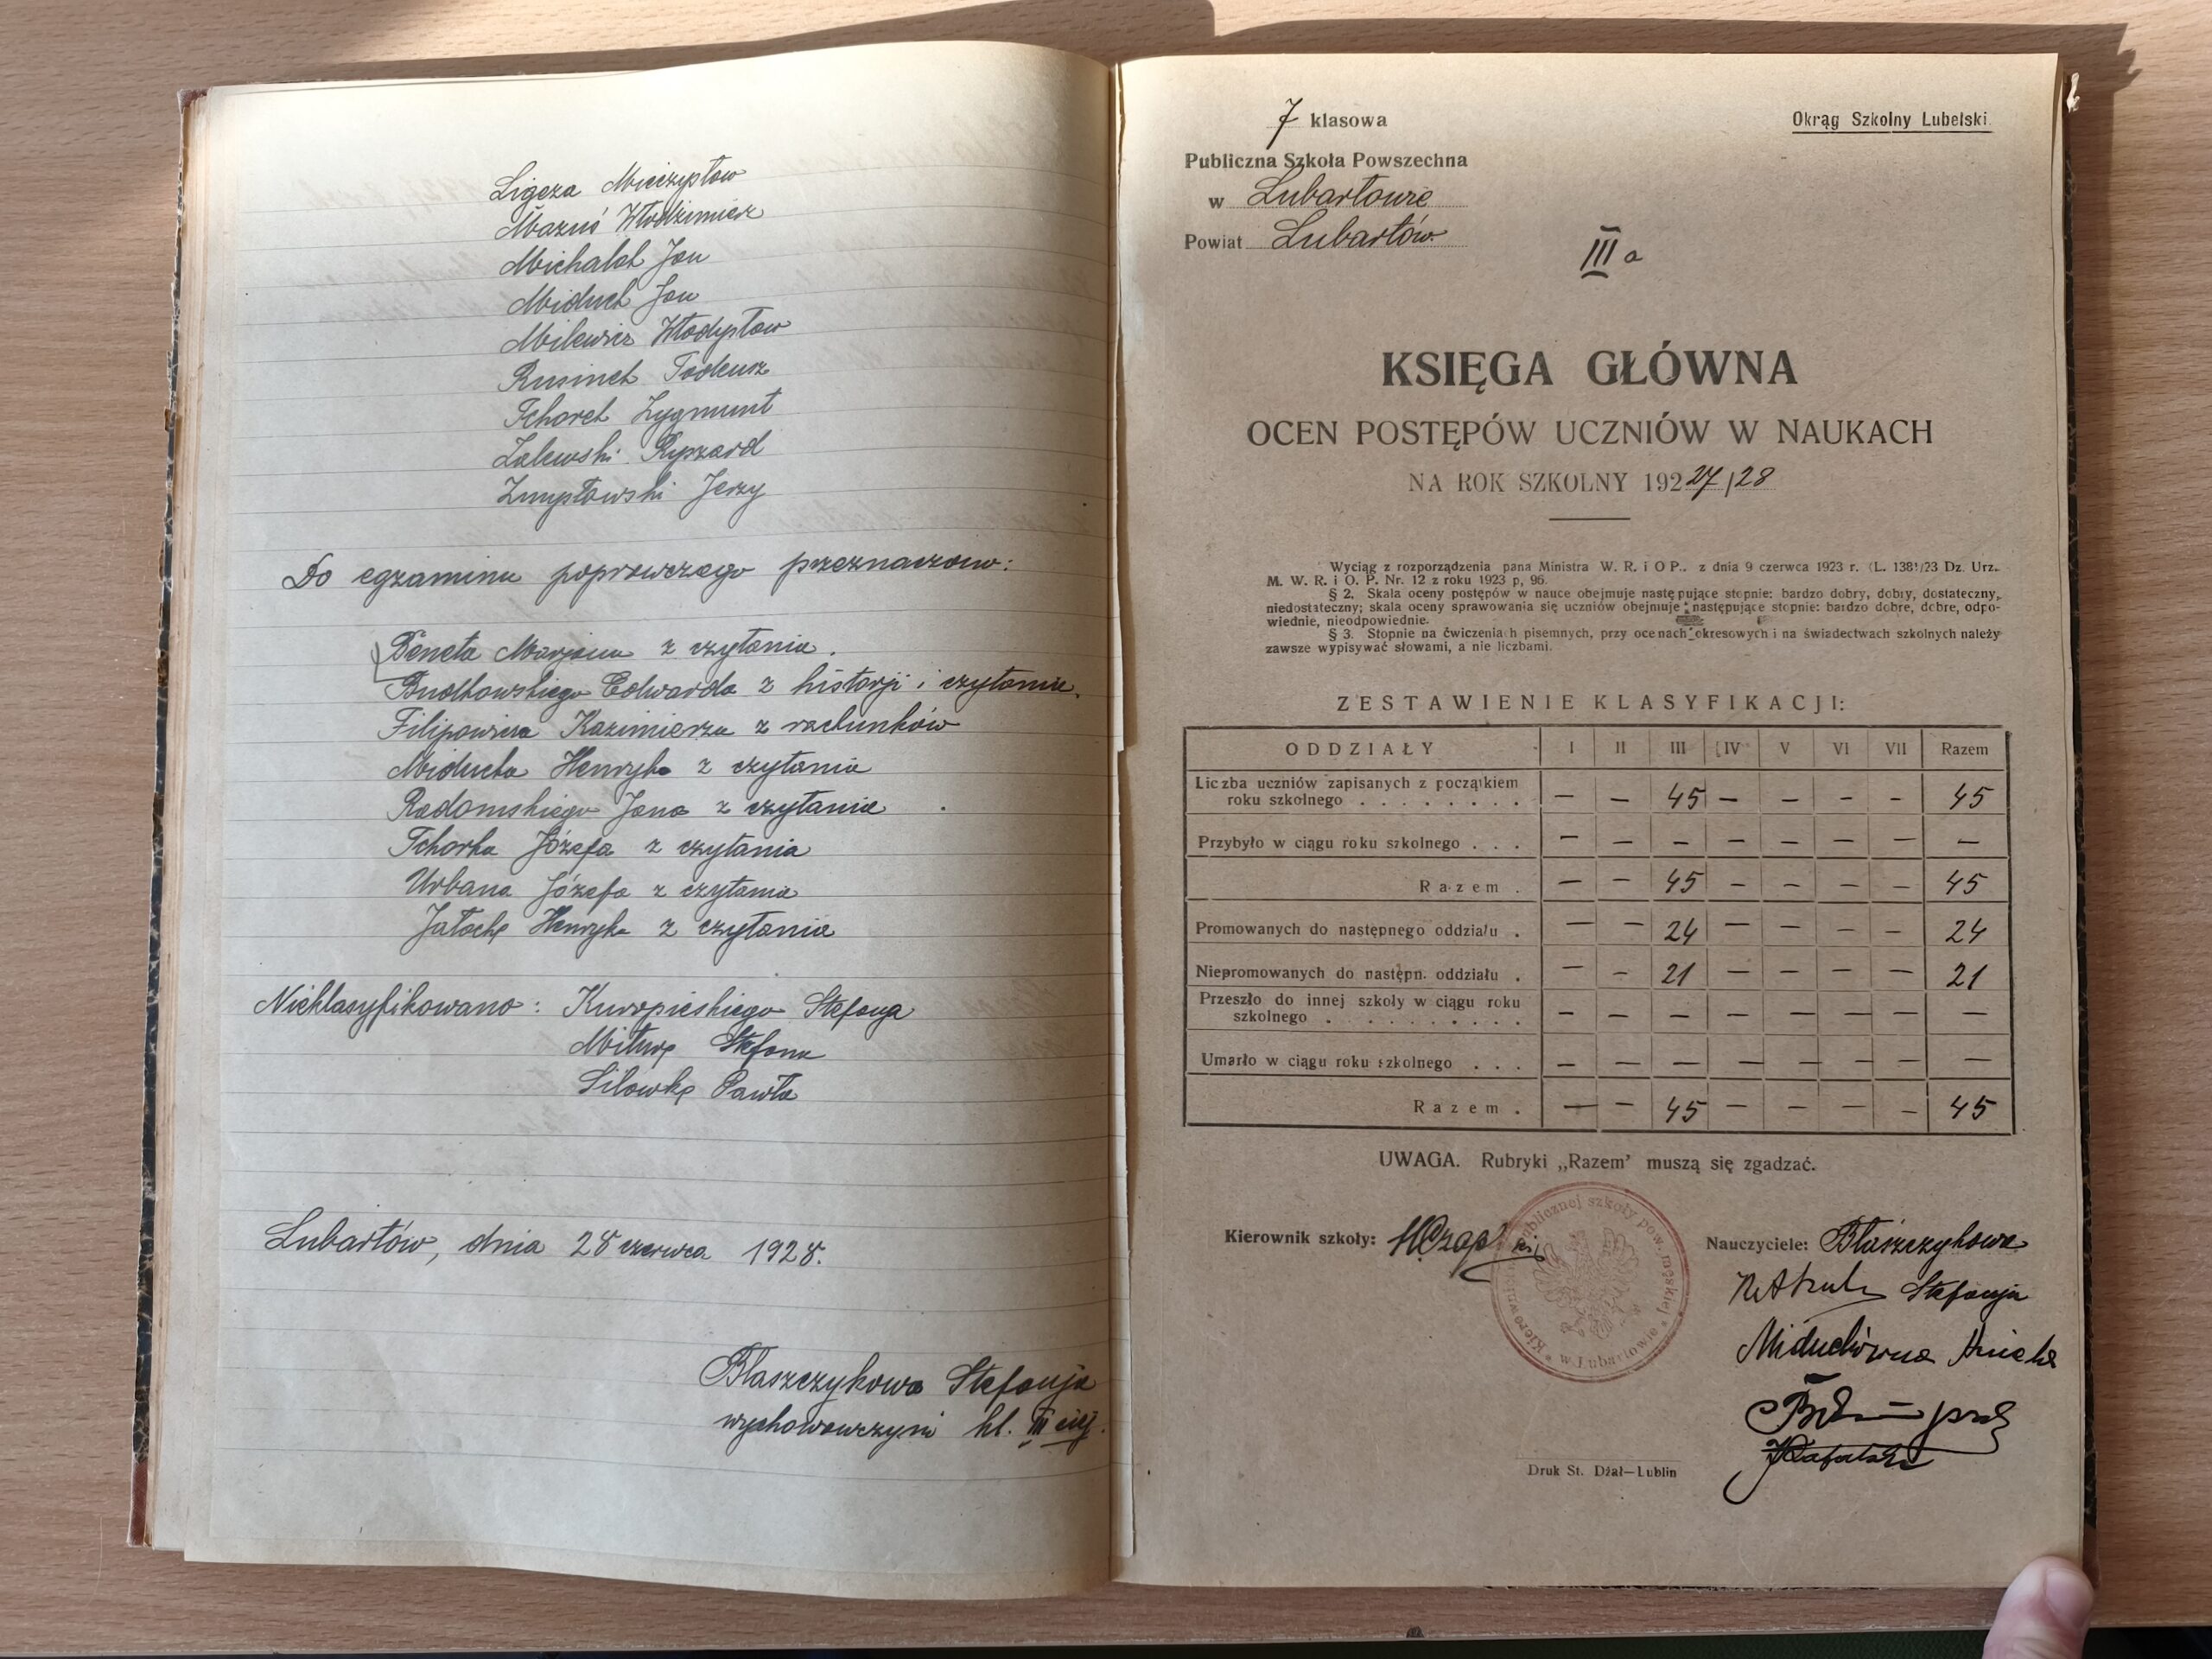 Ligęza Mieczysław
Mazuś Włodzimierz
Michalak Jan
Miduch Jan
Milewicz Władysław
Rusinek Tadeusz
Tchorek Zygmunt
Zalewski Ryszard
Zmysłowski Jerzy
Do egzaminu poprawczego przeznaczono:
Beneta Marjana z czytania.
Budkowskiego Edwarda z historji i czytania.
Filipowicza Kazimierza z rachunków
Miducha Henryka z czytania
Radomskiego Jana z czytania
Tchorka Józefa z czytania
Urbana Józefa z czytania
Jatochę Henryka z czytania
Nieklasyfikowano: Kuropieskiego Stefana
Miturę Stefana
Silowkę Pawła
Lubartów, dnia 28 czerwca 1928.
Błaszczykowa Stefanja
wychowawczyni kl. III ciej.
7 klasowa
Okrąg Szkolny Lubelski.
Publiczna Szkoła Powszechna
w Lubartowie
Powiat Lubartów
III a
KSIĘGA GŁÓWNA
OCEN POSTĘPÓW UCZNIÓW W NAUKACH
NA ROK SZKOLNY 192 27/28
Wyciąg z rozporządzenia pana Ministra W. R. i O P.. z dnia 9 czerwca 1923 r. (L. 1381/23 Dz. Urz.
M. W. R. i O. P. Nr. 12 z roku 1923 p, 96.
§ 2. Skala oceny postępów w nauce obejmuje następujące stopnie: bardzo dobry, dobry, dostateczny,
niedostateczny; skala oceny sprawowania się uczniów obejmuje następujące stopnie: bardzo dobre, dobre, odpo-
wiednie, nieodpowiednie.
§ 3. Stopnie na ćwiczeniach pisemnych, przy ocenach okresowych i na świadectwach szkolnych należy
zawsze wypisywać słowami, a nie liczbami.
ZESTAWIENIE KLASYFIKACJI:
ODDZIAŁY I II III IV V VI VII Razem
Liczba uczniów zapisanych z początkiem
roku szkolnego . . . . . . . . — — 45 — — — — 45
Przybyło w ciągu roku szkolnego . . . — — — — — — — —
Razem . — — 45 — — — — 45
Promowanych do następnego oddziału . — — 24 — — — — 24
Niepromowanych do następn. oddziału . — — 21 — — — — 21
Przeszło do innej szkoły w ciągu roku
szkolnego . . . . . . . . . . — — — — — — — —
Umarło w ciągu roku szkolnego . . . — — — — — — — —
Razem . — — 45 — — — — 45
UWAGA. Rubryki „Razem' muszą się zgadzać.
Kierownik szkoły:
Kierownictwo publicznej szkoły pow. męskiej * w Lubartowie *
Nauczyciele: Błaszczykowa
Stefanja
Miduchówna
Druk St. Dżał—Lublin